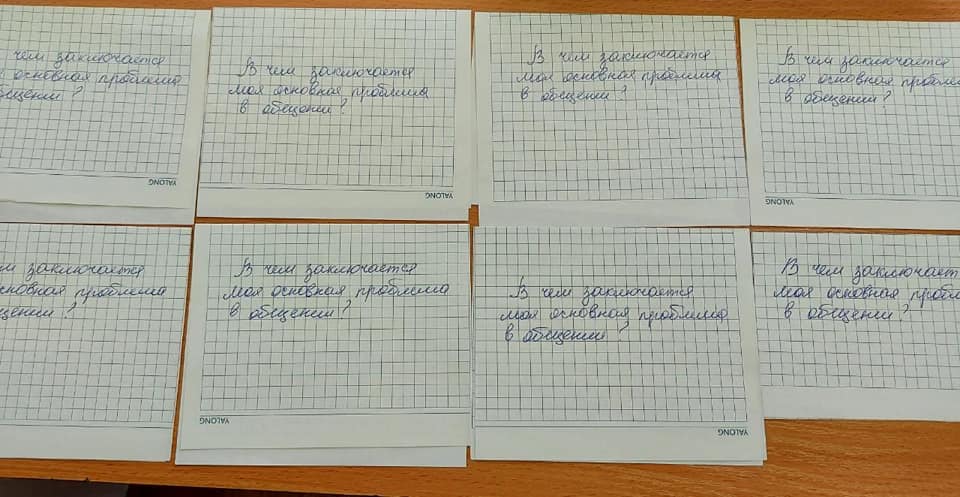 чем заключается
основная проблема
общении?
YALONG
В чем заключается
моя основная проблема
в общении?
YALONG
В чем заключается
моя основная проблема
в общении?
В чем заключается
моя основная проблема
в общении?
YALONG
заключается
основная проблема
В чем заключается
моя основная проблема
в общении?
YALONG
В чем заключается
моя основная проблема
в общении?
YALONG
В чем заключает
моя основная пробл
в общении?